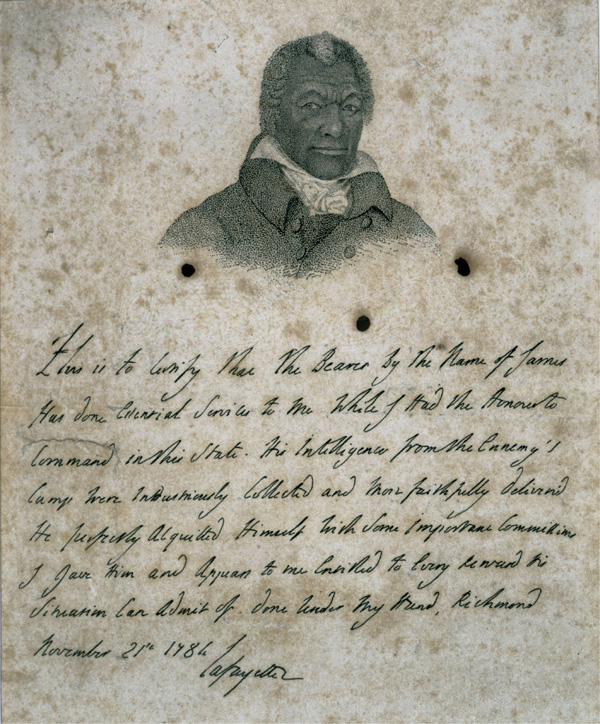 This is to Certify that the Bearer By the Name of James
Has done Essential Services to me While I Had the Honour to
Command in this State. His Intelligences from the Ennemy's
Camp were Industriously Collected and More faithfully deliver'd
He perfectly Acquitted Himself with Some Important Commissions
I Gave Him and Appears to me Entitled to Every Reward his
Situation Can Admit of. Done Under My Hand, Richmond
November 21st 1784
Lafayette